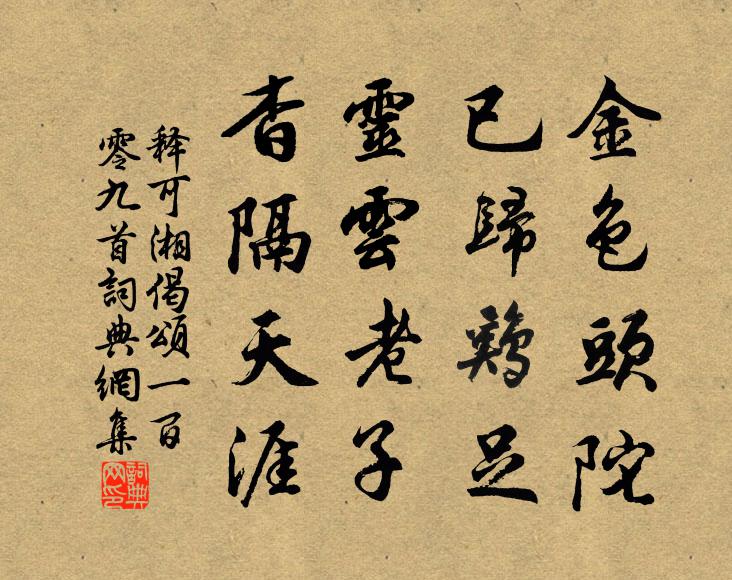 金色頭陀
已歸鷄足
靈雲老子
杳隔天涯
释可湘偈頌一百
零九首詞典網集
詞典
网印